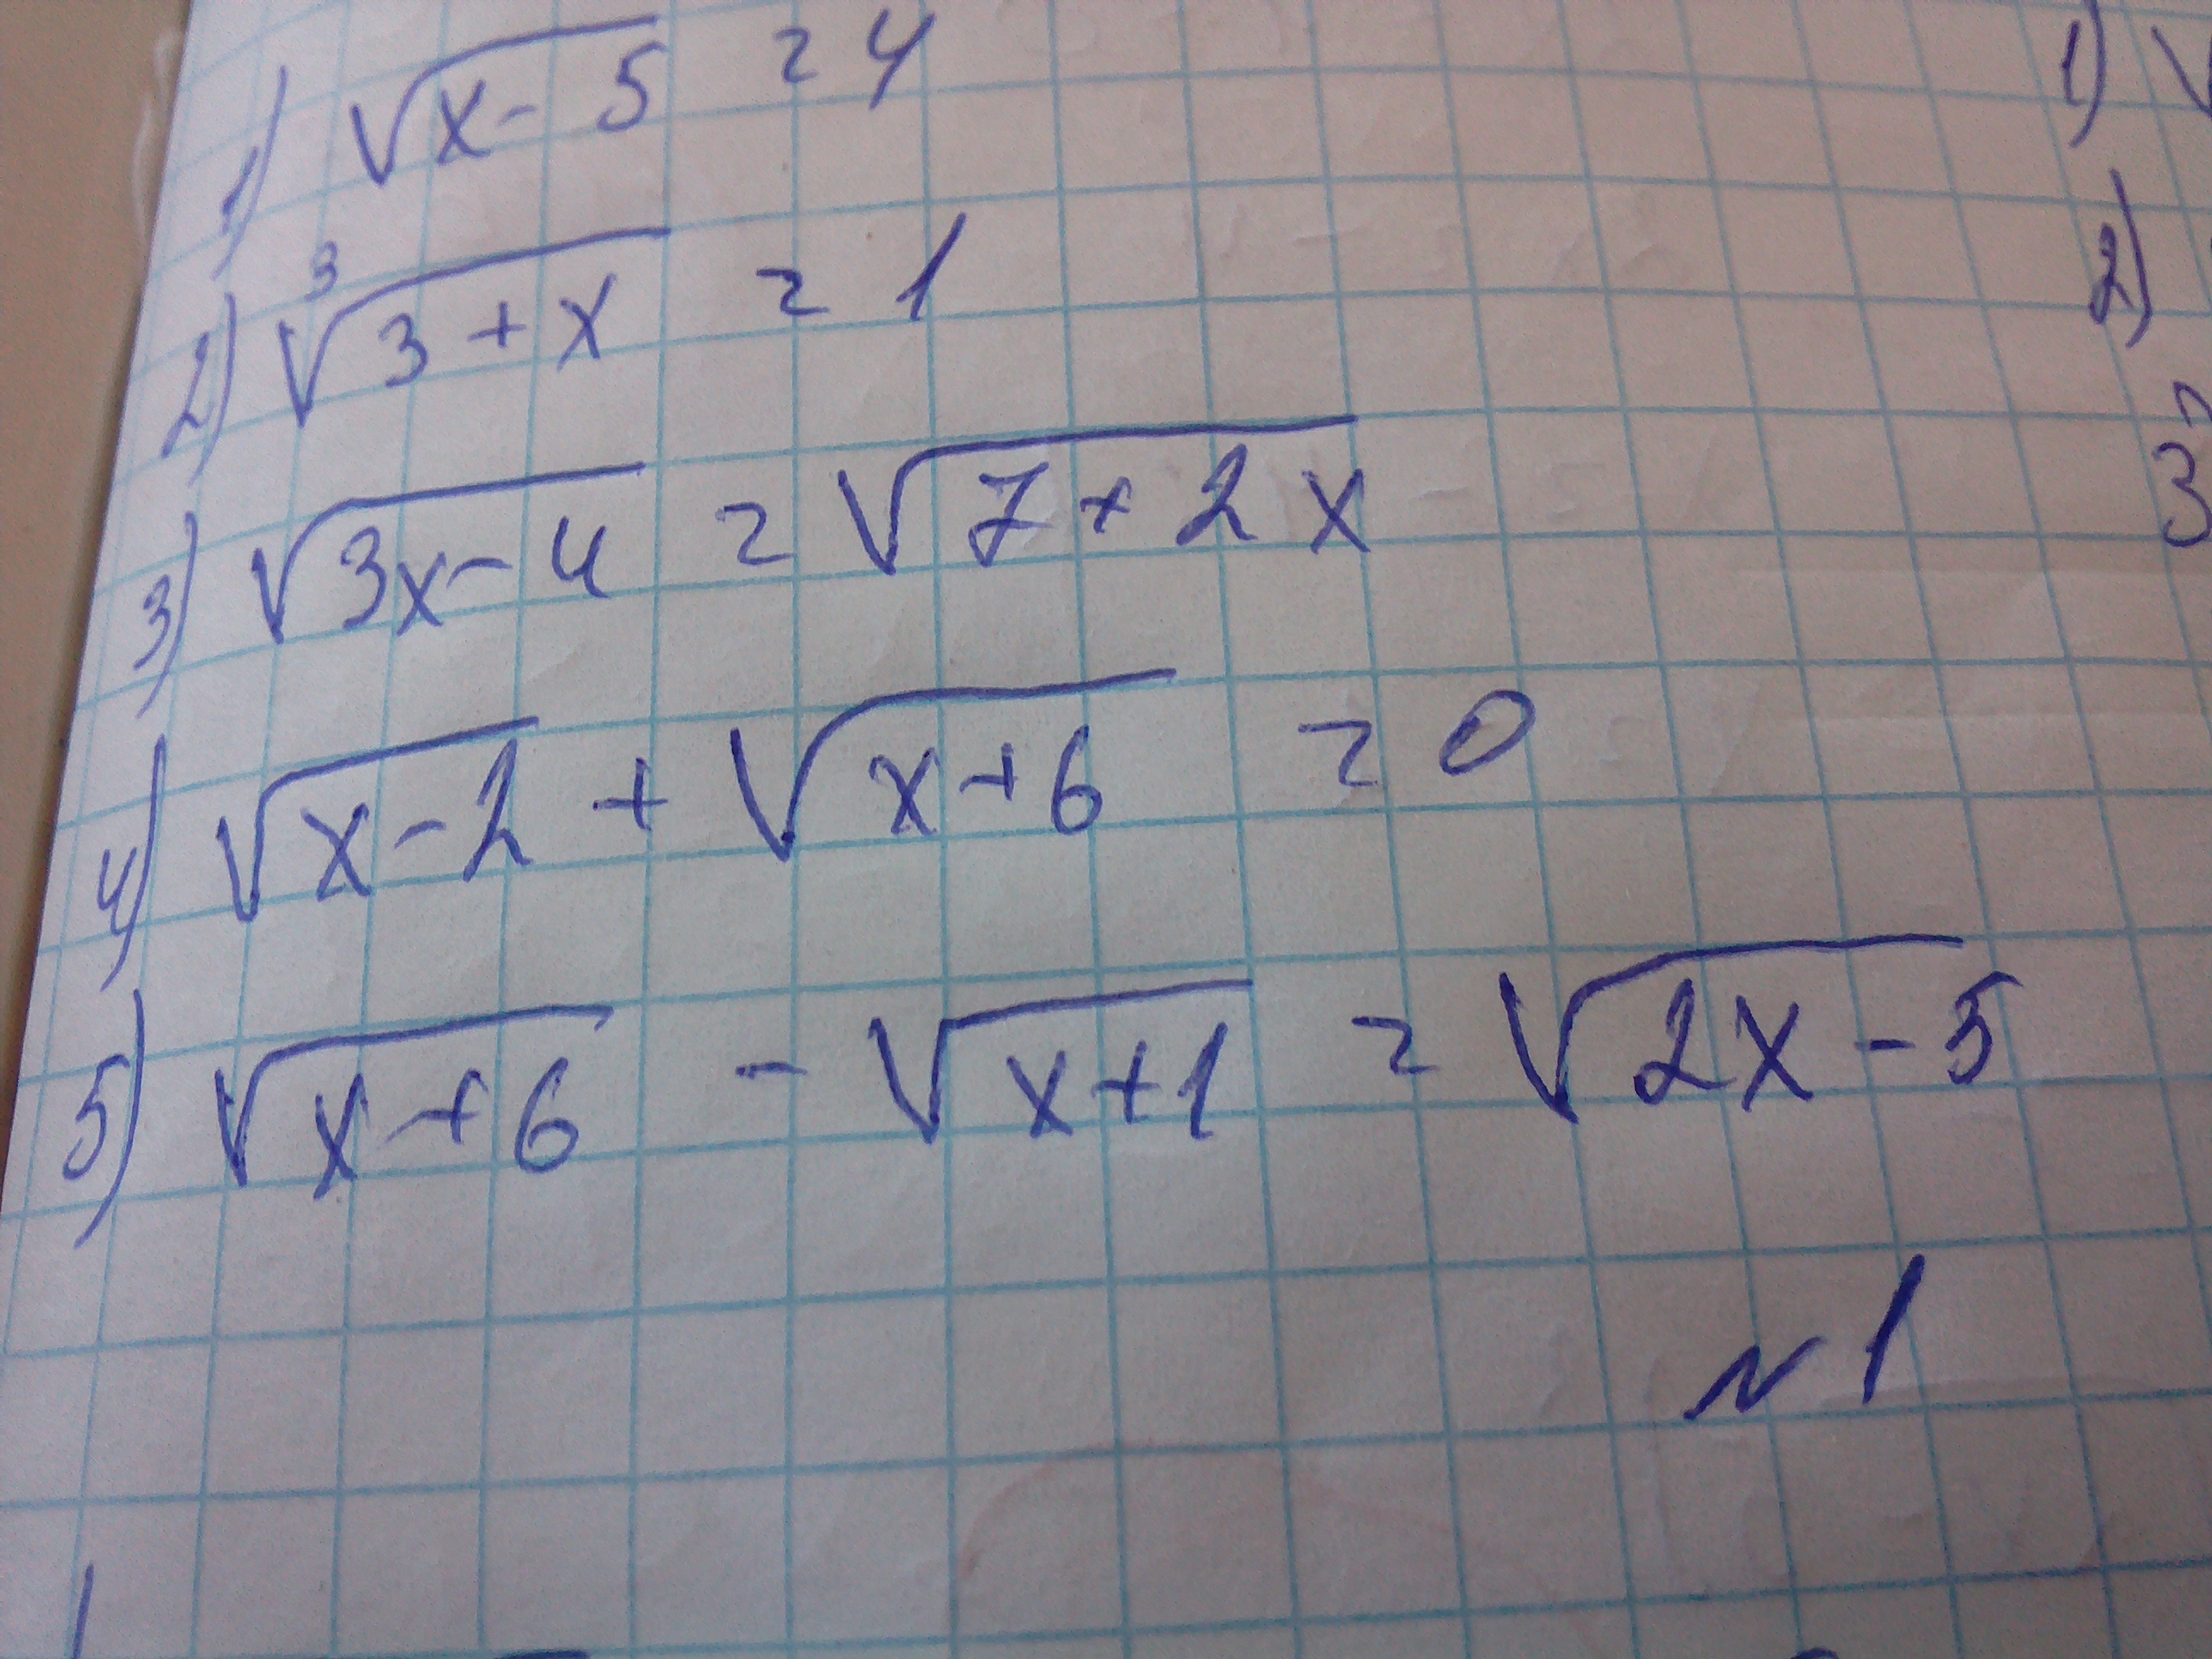 1) √x-5 = 4
2) ³√3+x = 1
3) √3x-4 = √7+2x
4) √x-2 + √x+6 = 0
5) √x+6 - √x+1 = √2x-5
N1
1) √
2)
3